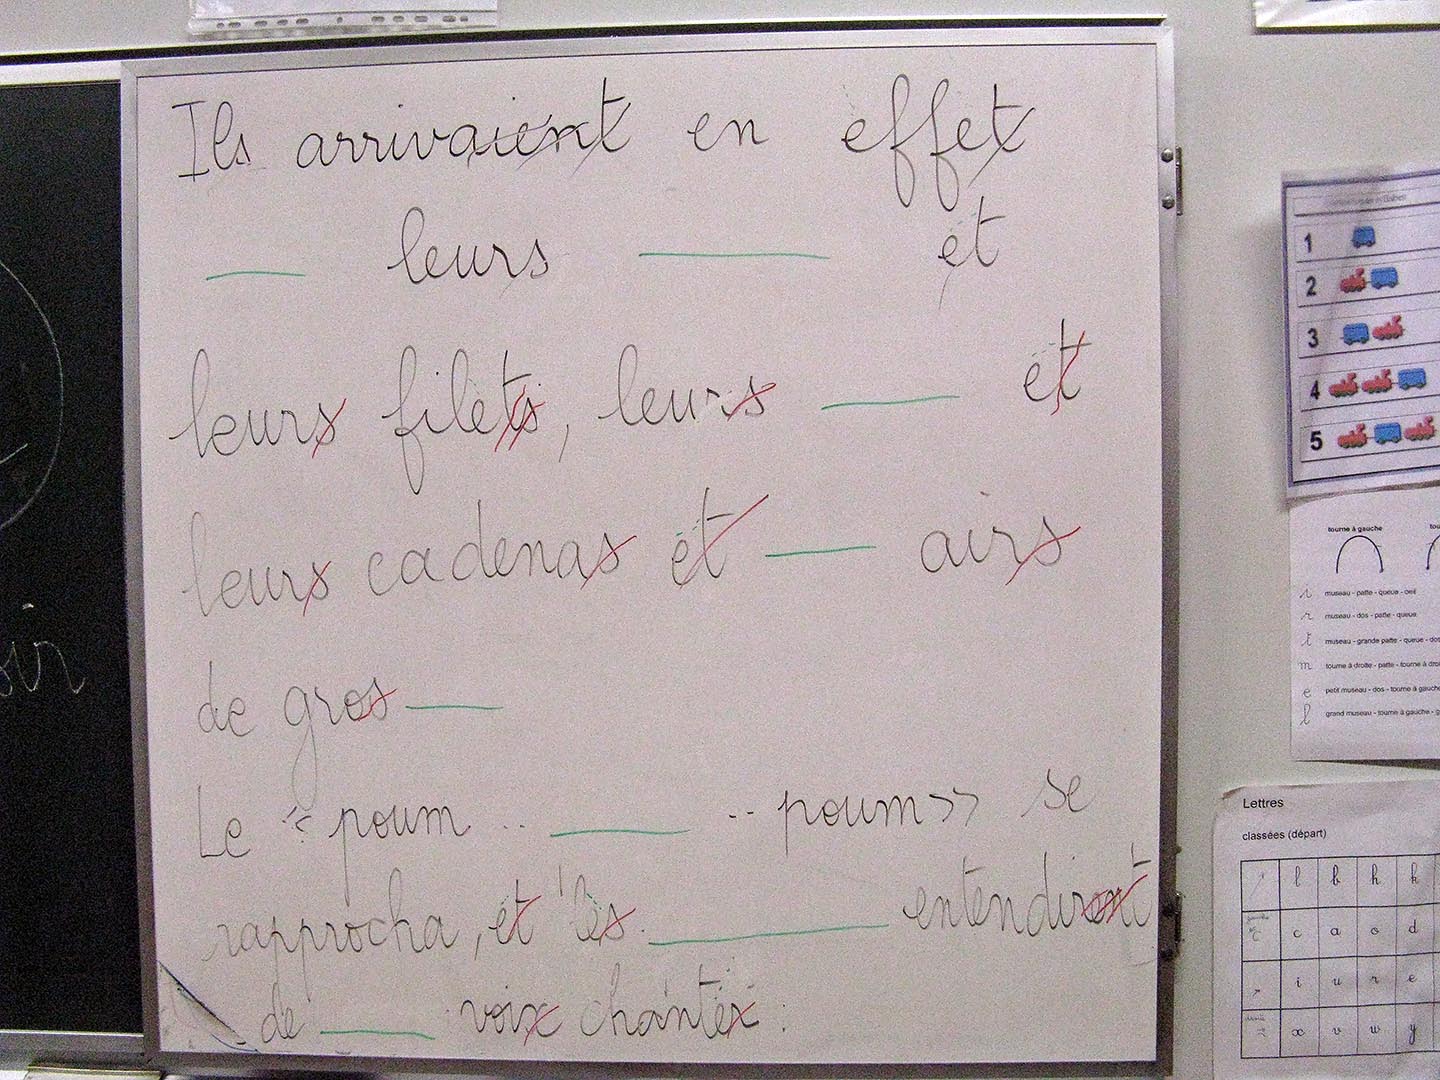 Ils arrivaient en effet
___ leurs ___ et
leurs filets, leurs ___ et
leurs cadenas et ___ airs
de gros ___
Le « poum .. ___ .. poum» se
rapprocha, et les ___ entendirent
de ___ voix chanter :
1
2
3
4
5
tourne à gauche
i museau - patte - queue - oeil
r museau - dos - patte - queue
t museau - grande patte - queue - dos
m tourne à droite - patte - tourne à
e petit museau - dos - tourne à gauche
l grand museau - tourne à gauche
Lettres
classées (départ)
l b h k
c a o d
i u r e
x v w y